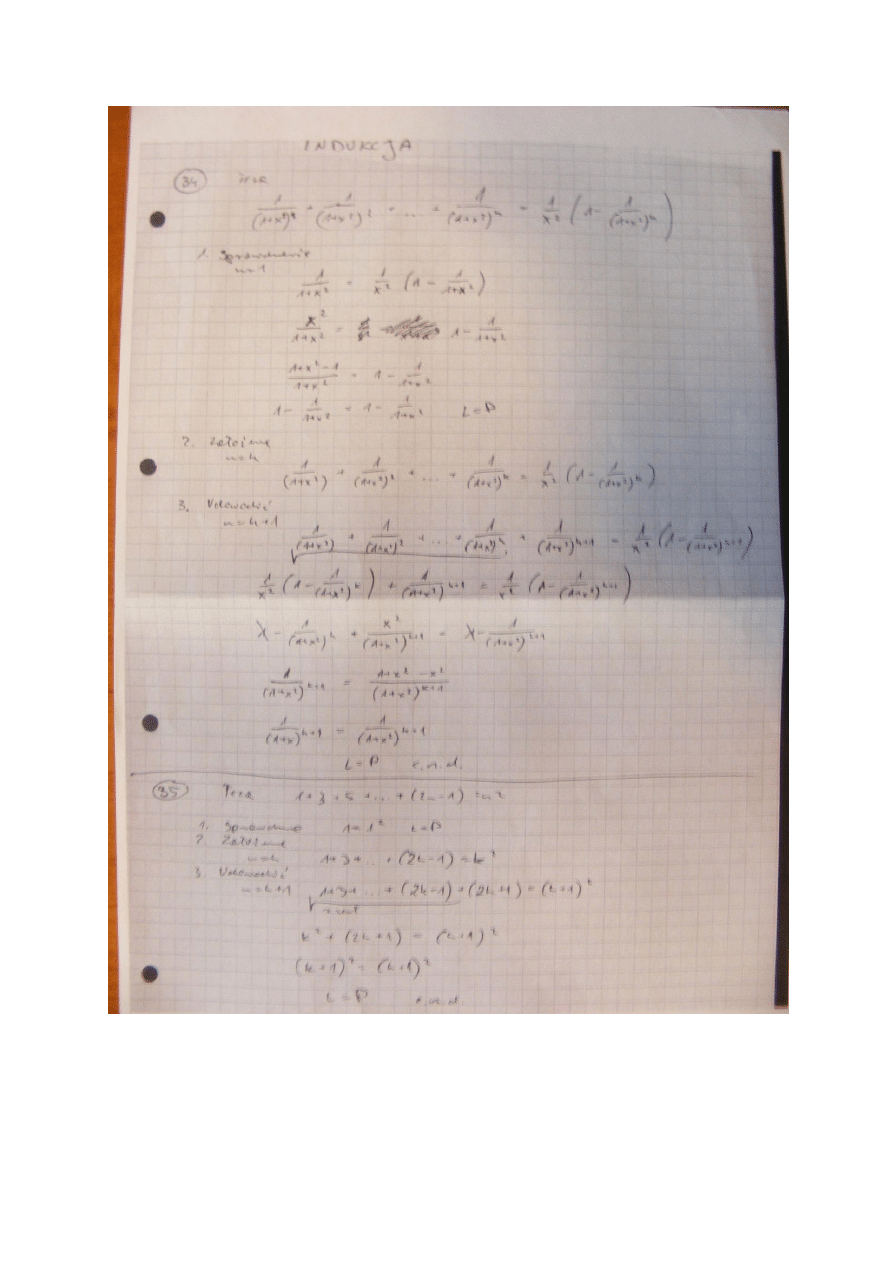 INDUKCJA
34 Teza
1/(1+x²)¹ + 1/(1+x²)² + ... + 1/(1+x²)ⁿ = 1/x² (1 - 1/(1+x²)ⁿ)
1. Sprawdzenie
n=1
1/(1+x²) = 1/x² (1 - 1/(1+x²))
x²/(1+x²) = 1 - 1/(1+x²)
(1+x²-1)/(1+x²) = 1 - 1/(1+x²)
1 - 1/(1+x²) = 1 - 1/(1+x²) L=P
2. Założenie
n=k
1/(1+x²) + 1/(1+x²)² + ... + 1/(1+x²)ᵏ = 1/x² (1 - 1/(1+x²)ᵏ)
3. Udowodnić
n=k+1
1/(1+x²) + 1/(1+x²)² + ... + 1/(1+x²)ᵏ + 1/(1+x²)ᵏ⁺¹ = 1/x² (1 - 1/(1+x²)ᵏ⁺¹)
1/x² (1 - 1/(1+x²)ᵏ) + 1/(1+x²)ᵏ⁺¹ = 1/x² (1 - 1/(1+x²)ᵏ⁺¹)
1 - 1/(1+x²)ᵏ + x²/(1+x²)ᵏ⁺¹ = 1 - 1/(1+x²)ᵏ⁺¹
1/(1+x²)ᵏ⁺¹ = (1+x²-x²)/(1+x²)ᵏ⁺¹
1/(1+x)ᵏ⁺¹ = 1/(1+x²)ᵏ⁺¹
L=P c.n.d.
35 Teza 1+3+5+...+(2n-1)=n²
1. Sprawdzenie 1=1² L=P
2. Założenie
n=k 1+3+...+(2k-1)=k²
3. Udowodnić
n=k+1 1+3+...+(2k-1)+(2k+1)=(k+1)²
k²+(2k+1) = (k+1)²
(k+1)² = (k+1)²
L=P c.n.d.